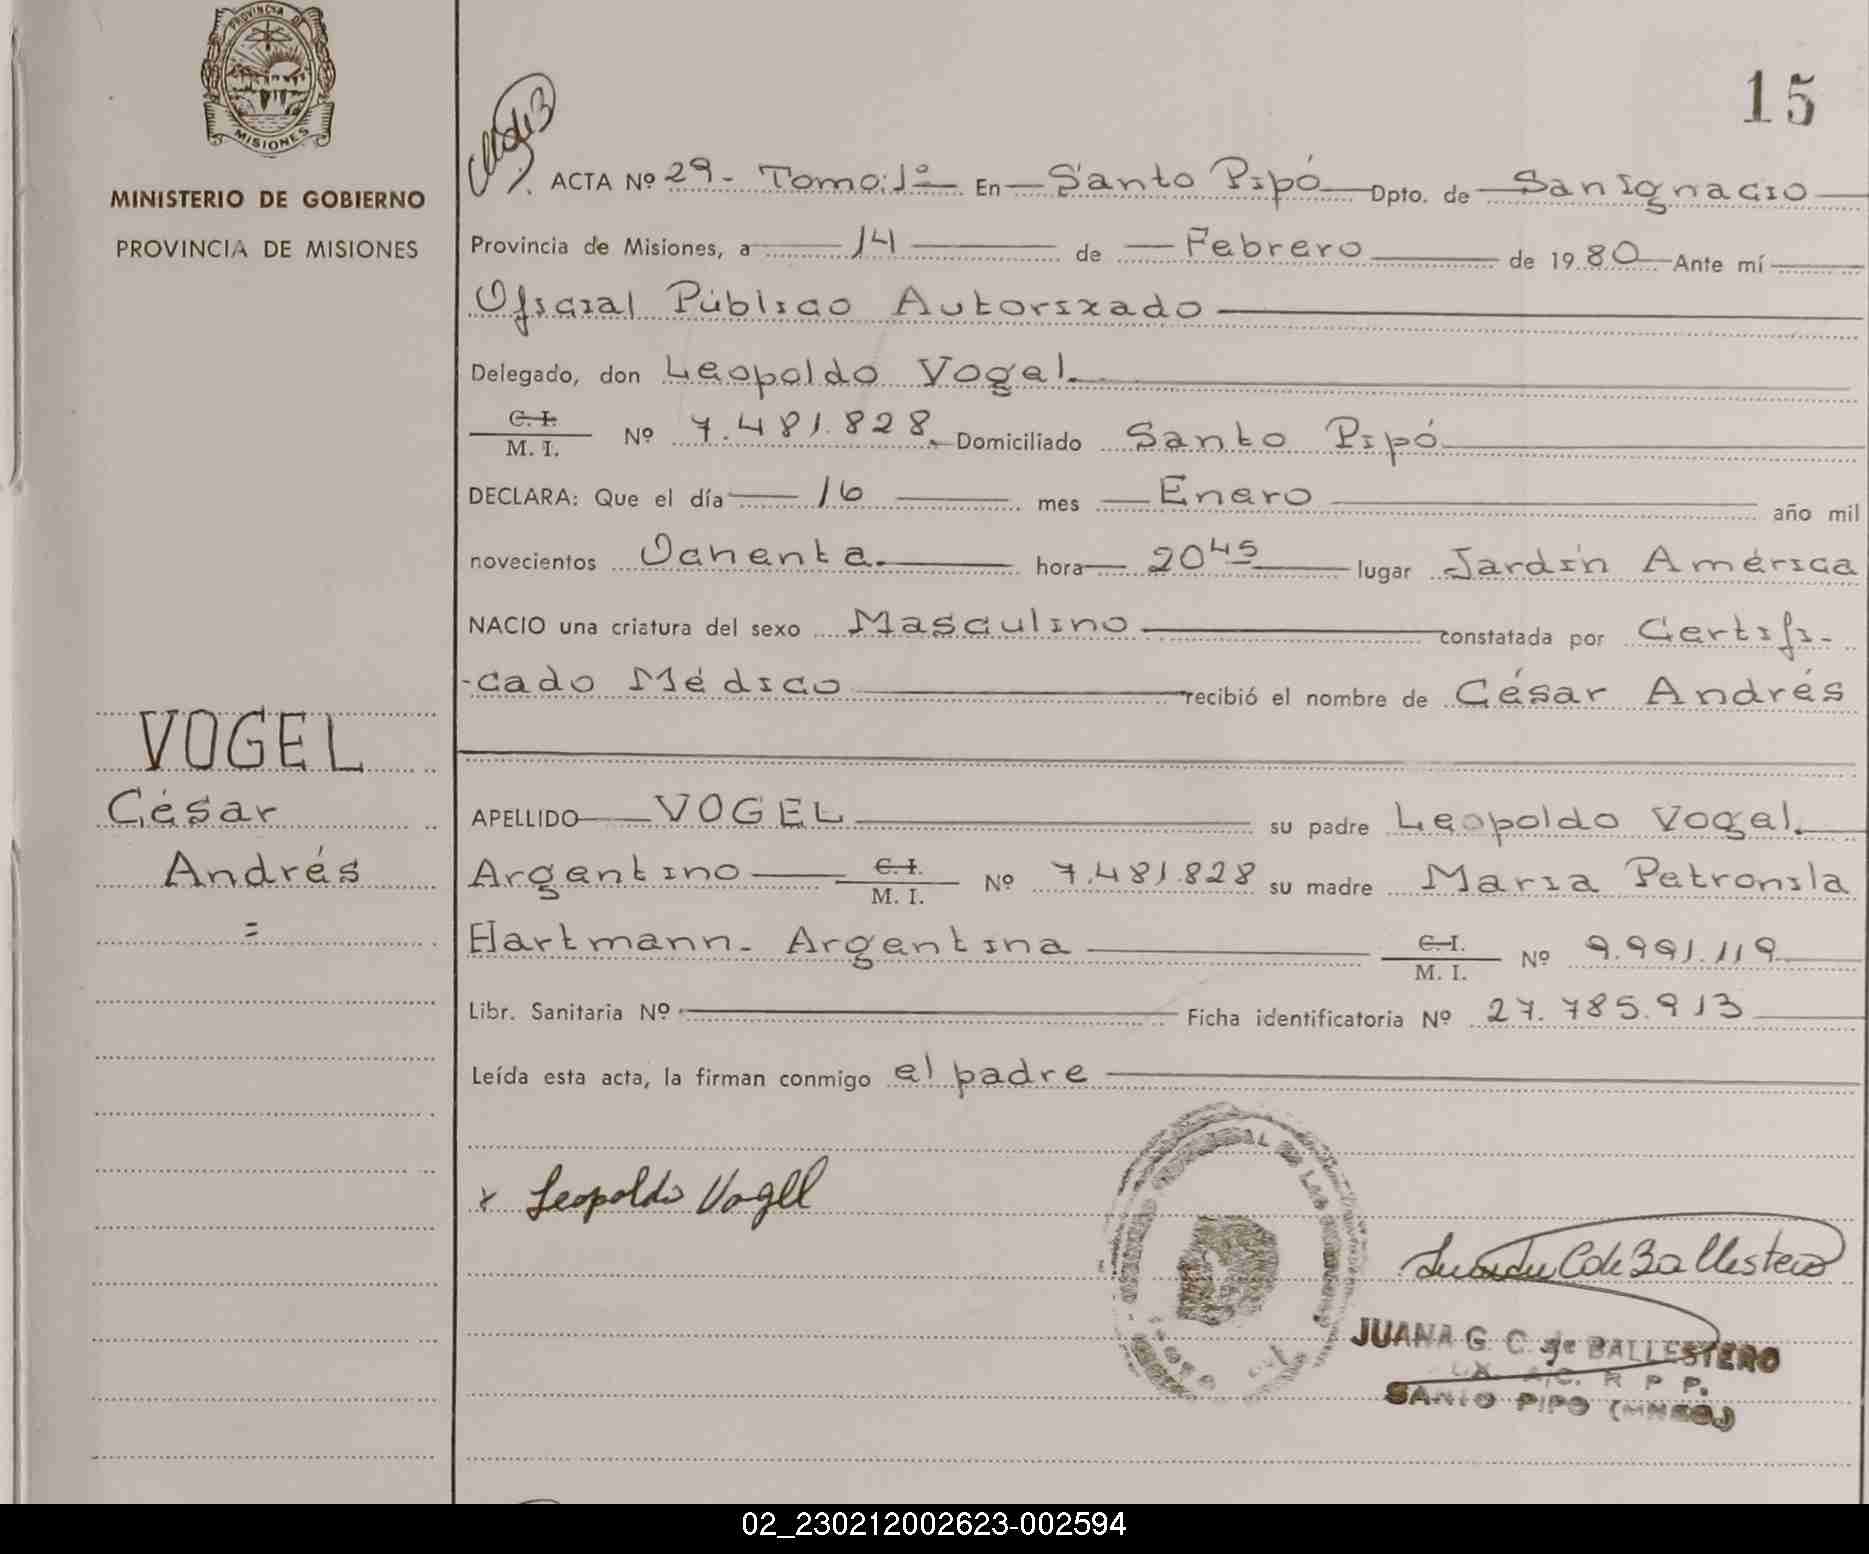 PROVINCIA DE
MISIONES
MINISTERIO DE GOBIERNO
PROVINCIA DE MISIONES
15
ACTA Nº 29- Tomo: 1º En Santo Pipó Dpto. de San Ignacio
Provincia de Misiones, a 14 de Febrero de 1980 Ante mí
Oficial Público Autorizado
Delegado, don Leopoldo Vogel.
C. I.
M. I. Nº 7.481.828. Domiciliado Santo Pipó
DECLARA: Que el día 16 mes Enero año mil
novecientos Ochenta. hora 20 45 lugar Jardín América
NACIO una criatura del sexo Masculino constatada por Certifi-
-cado Médico recibió el nombre de César Andrés
VOGEL
César
Andrés
=
APELLIDO VOGEL su padre Leopoldo Vogel.
Argentino C. I. M. I. Nº 7.481.828 su madre Maria Petronila
Hartmann- Argentina C. I. M. I. Nº 9.991.119
Libr. Sanitaria Nº Ficha identificatoria Nº 27.785.913
Leída esta acta, la firman conmigo el padre
x Leopoldo Vogel
C de Ballestero
JUANA G. C. de BALLESTERO
R P P.
SANTO PIPO (MNES)
02_230212002623-002594